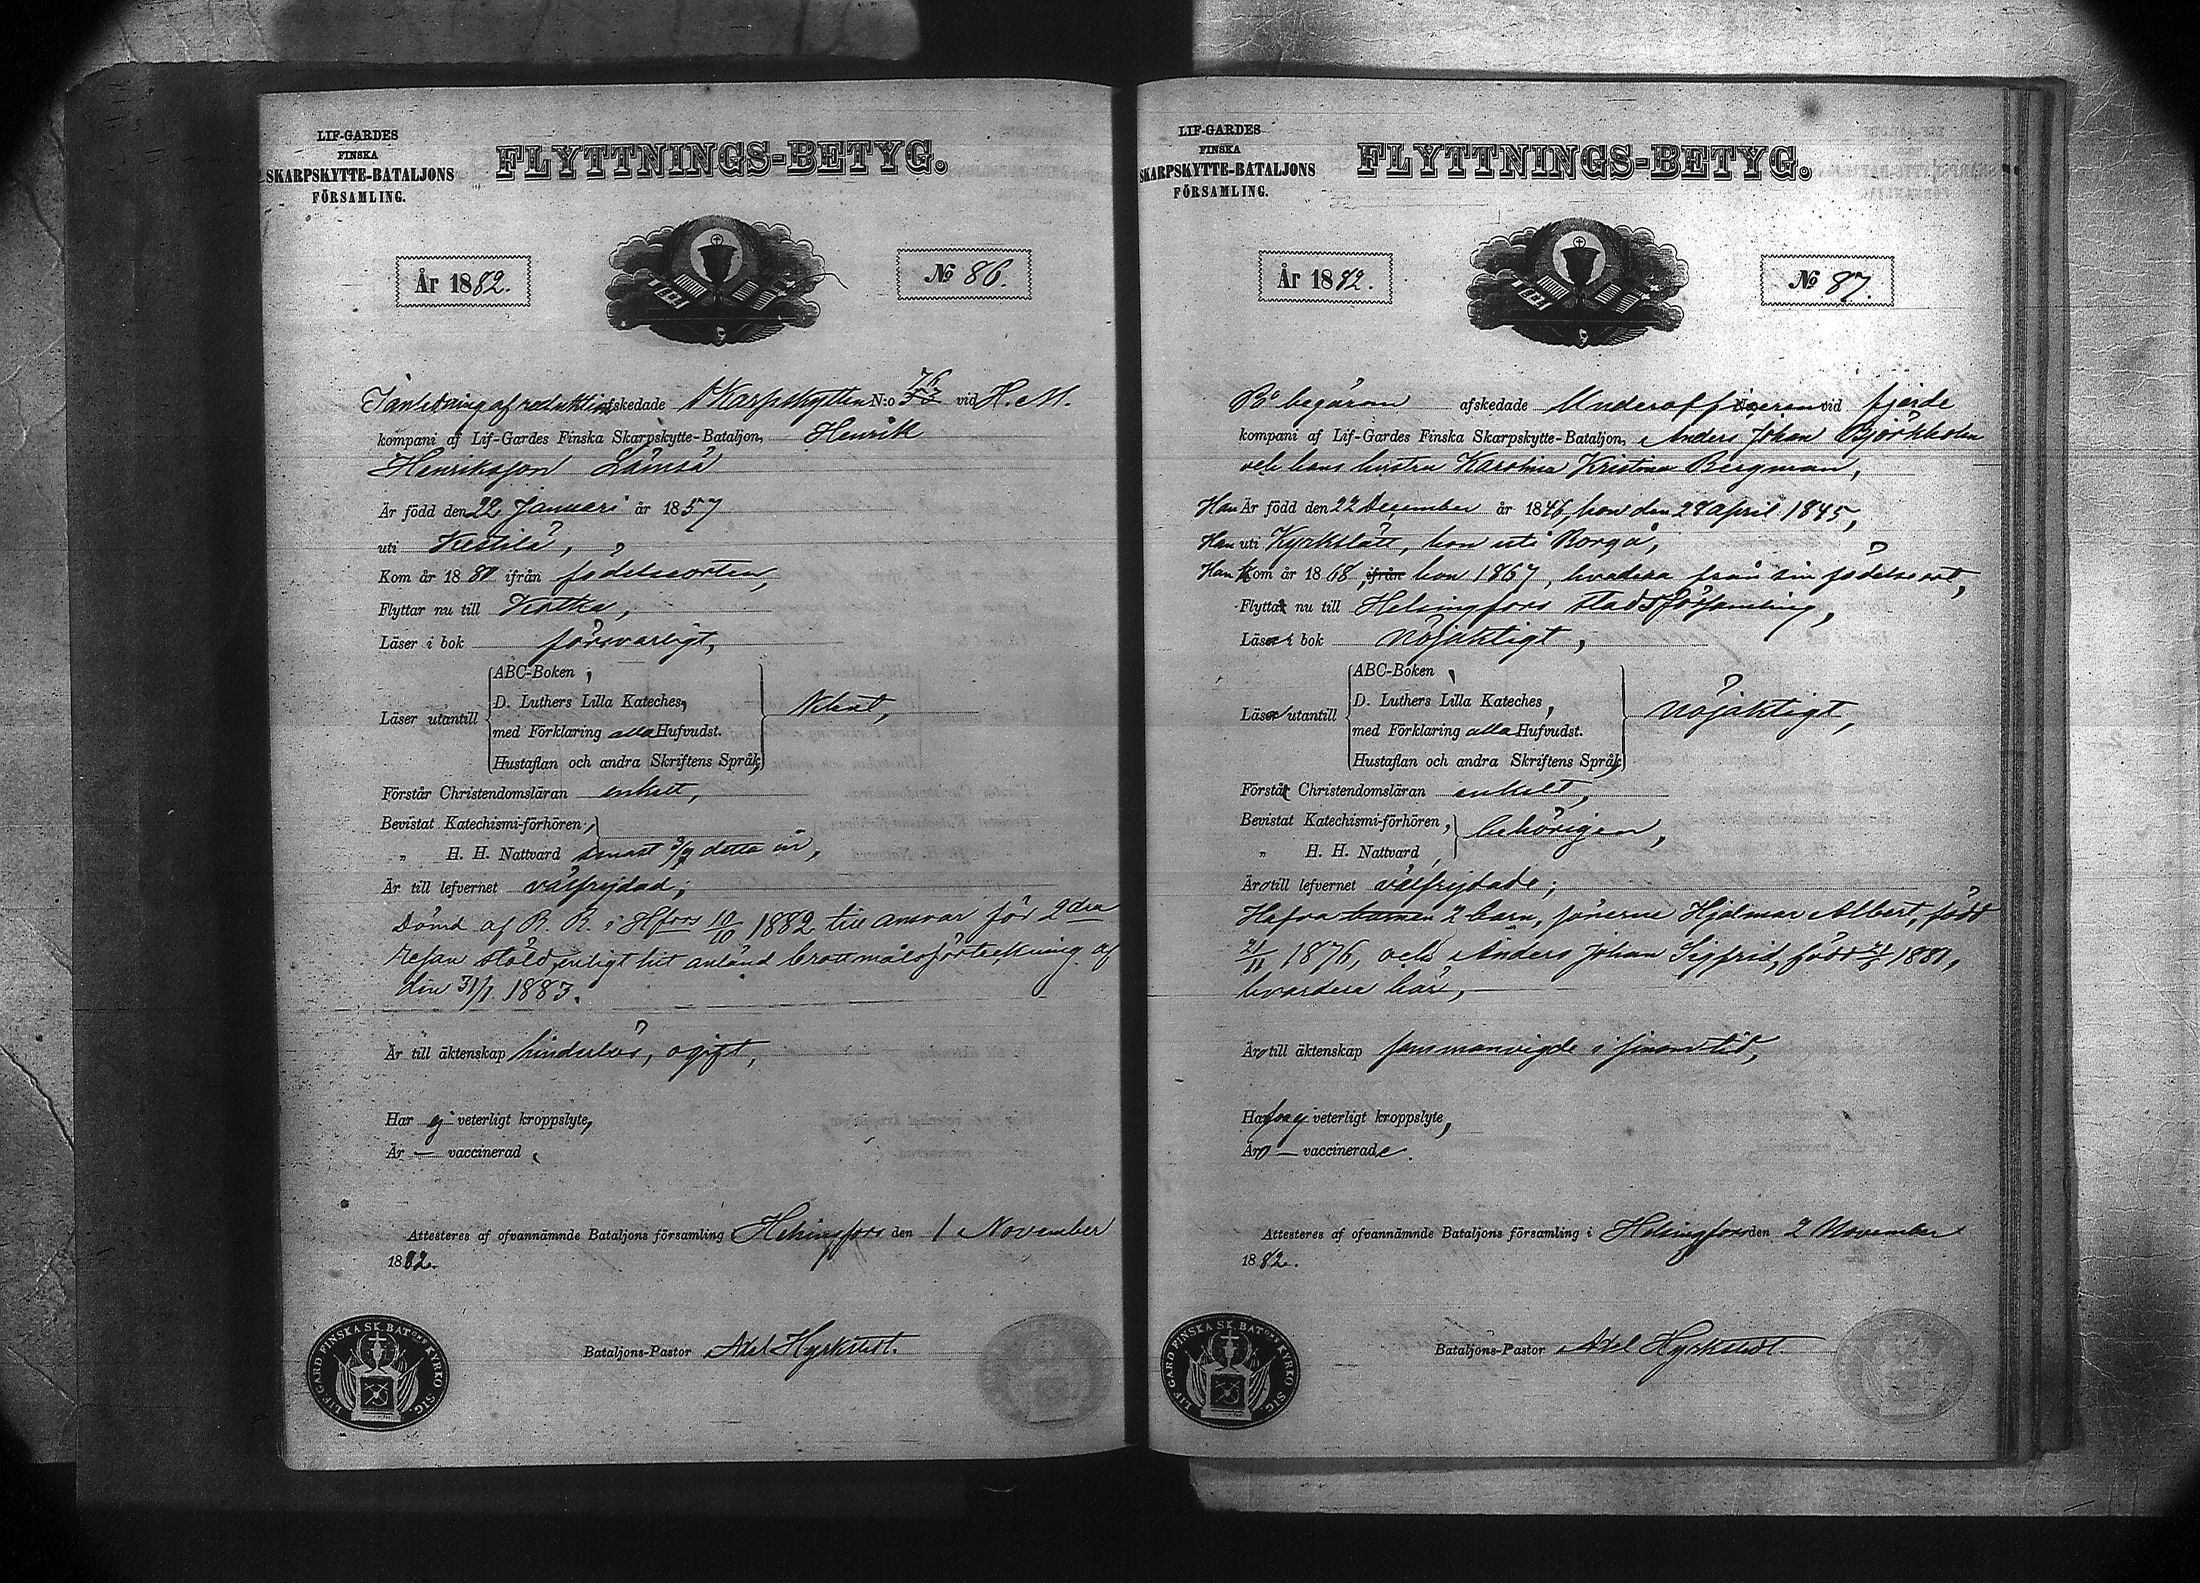 LIF-GARDES
FINSKA
SKARPSKYTTE-BATALJONS
FÖRSAMLING.
FLYTTNINGS-BETYG.
År 1882.
No 86.
I anledning af reduktion afskedade Skarpskytten N:o 76/33 vid H. M.
kompani af Lif-Gardes Finska Skarpskytte-Bataljon, Henrik
Henriksson Lämsä
Är född den 22 Januari år 1857
uti Kestilä,
Kom år 1880 ifrån födelseorten,
Flyttar nu till Kotka,
Läser i bok försvarligt,
Läser utantill
ABC-Boken,
D. Luthers Lilla Kateches,
med Förklaring alla Hufvudst.
Hustaflan och andra Skriftens Språk,
Förstår Christendomsläran enkelt,
Bevistat Katechismi-förhören,
„ H. H. Nattvard senast detta år,
Är till lefvernet välfrejdad;
Dömd af R. R. i Hfors 10/10 1882 till ansvar för 2dra
resan stöld, enligt hit anländ brottmålsförteckning af
den 31/1 1883.
Är till äktenskap hinderlös, ogift,
Har ej veterligt kroppslyte,
Är — vaccinerad.
Attesteres af ofvannämnde Bataljons församling Helsingfors den 1 November
1882.
Bataljons-Pastor Axel Hyrkstedt.
LIF-GARD FINSKA SK. BATONS KYRKO SIG.
LIF-GARDES
FINSKA
SKARPSKYTTE-BATALJONS
FÖRSAMLING.
FLYTTNINGS-BETYG.
År 1882.
No 87.
På begäran afskedade Underofficeren vid fjerde
kompani af Lif-Gardes Finska Skarpskytte-Bataljon, Anders Johan Björkholm
och hans hustru Karolina Kristina Bergman,
Han Är född den 22 December år 1846, hon den 28 April 1845,
Han uti Kyrkslätt, hon uti Borgå,
Han Kom år 1868, ifrån hon 1867, hvardera från sin födelseort,
Flytta nu till Helsingfors stadsförsamling,
Läsa i bok nöjaktigt,
Läsa utantill
ABC-Boken,
D. Luthers Lilla Kateches,
med Förklaring alla Hufvudst.
Hustaflan och andra Skriftens Språk,
nöjaktigt,
Förstå Christendomsläran enkelt,
Bevistat Katechismi-förhören,
„ H. H. Nattvard,
behörigen,
Äro till lefvernet välfrejdade;
Hafva barnen 2 barn, sönerne Hjalmar Albert, född
1876, och Anders Johan Sigfrid, född 1881,
hvardera här,
Äro till äktenskap sammanvigde i sinom tid,
Hafva ej veterligt kroppslyte,
Äro — vaccinerade.
Attesteres af ofvannämnde Bataljons församling i Helsingfors den 2 November
1882.
Bataljons-Pastor Axel Hyrkstedt.
LIF-GARD FINSKA SK. BATONS KYRKO SIG.